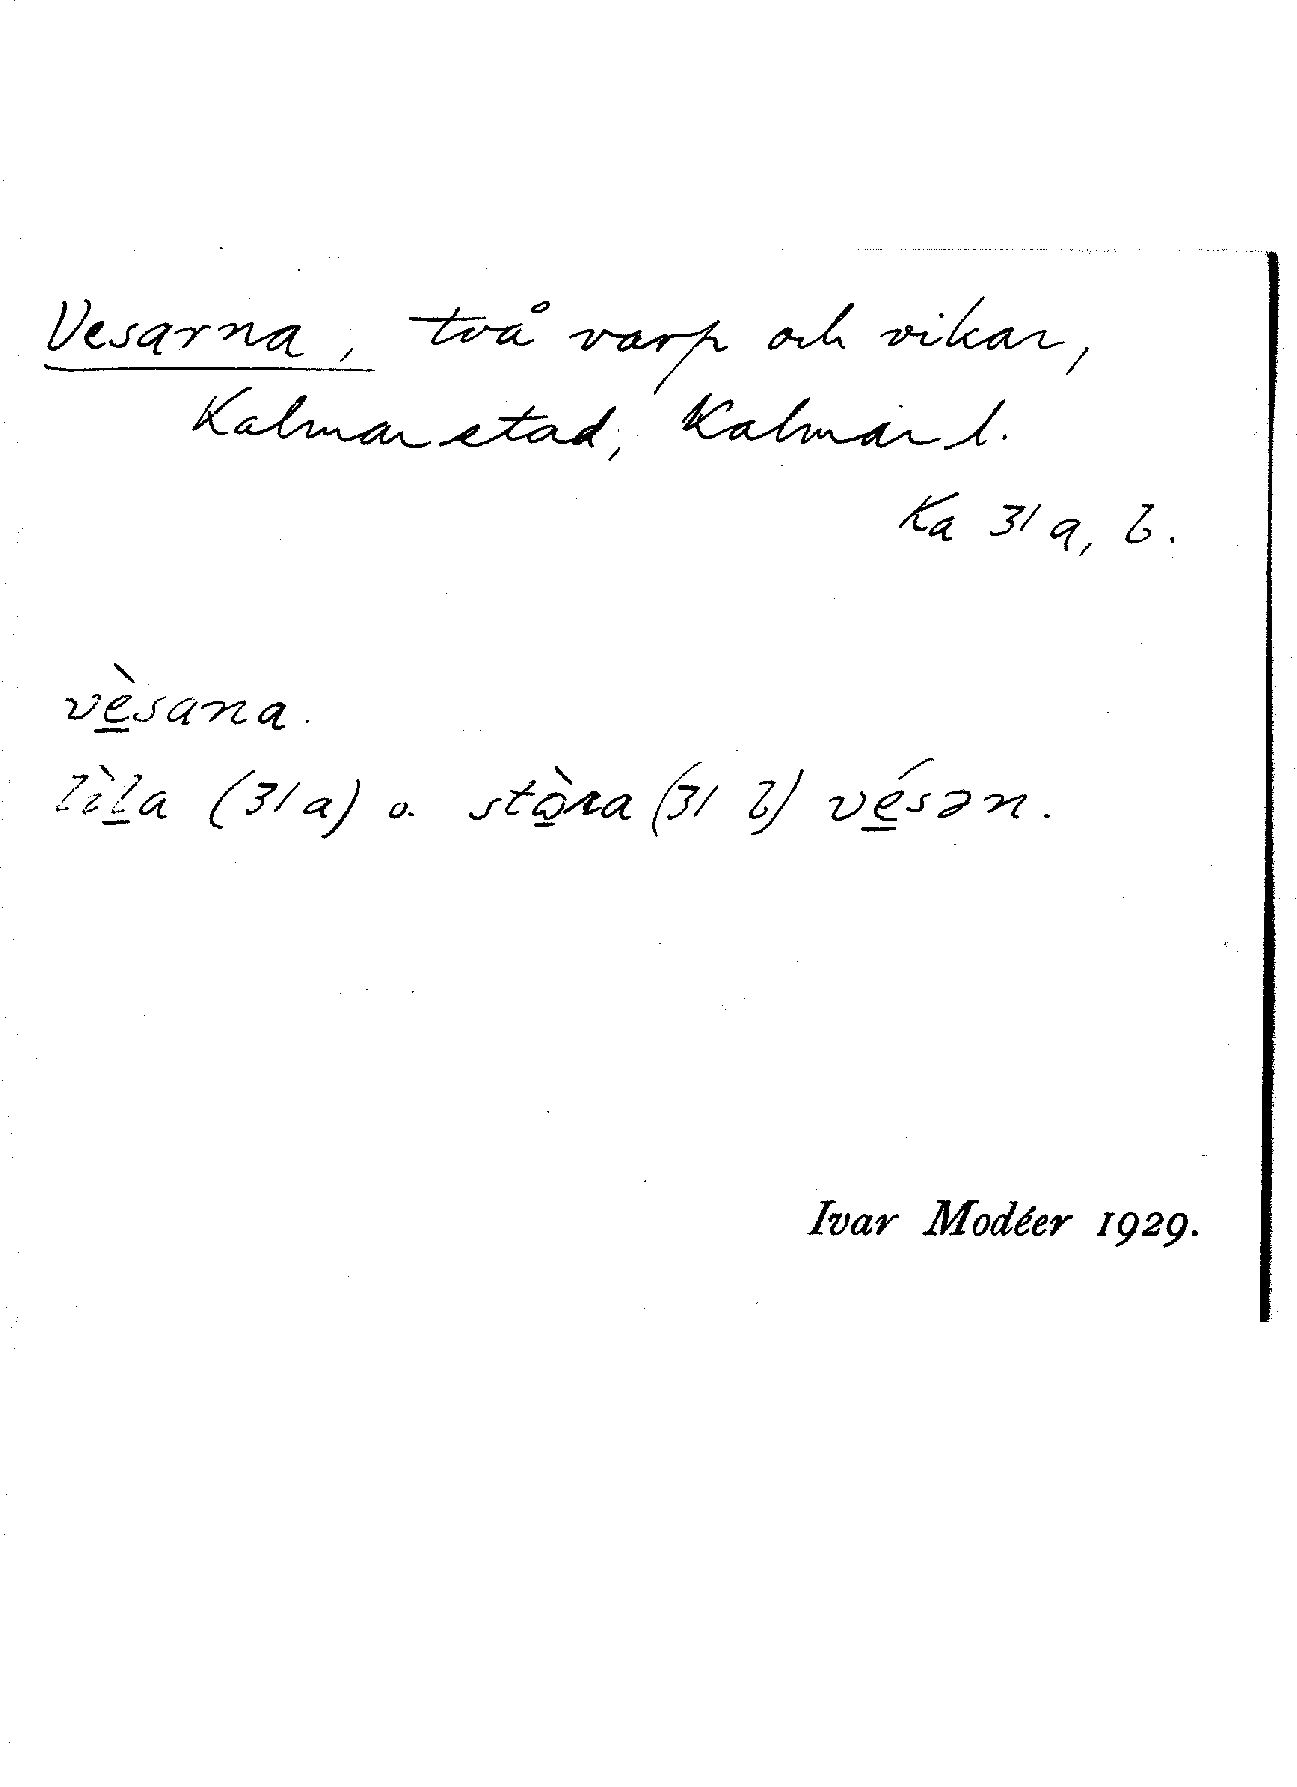 Vesarna, två varp och vikar,
Kalmar stad, Kalmar l.
Ka 31 a, b.
vèsana.
lìla (31 a) o. stòra (31 b) vésən.
Ivar Modéer 1929.